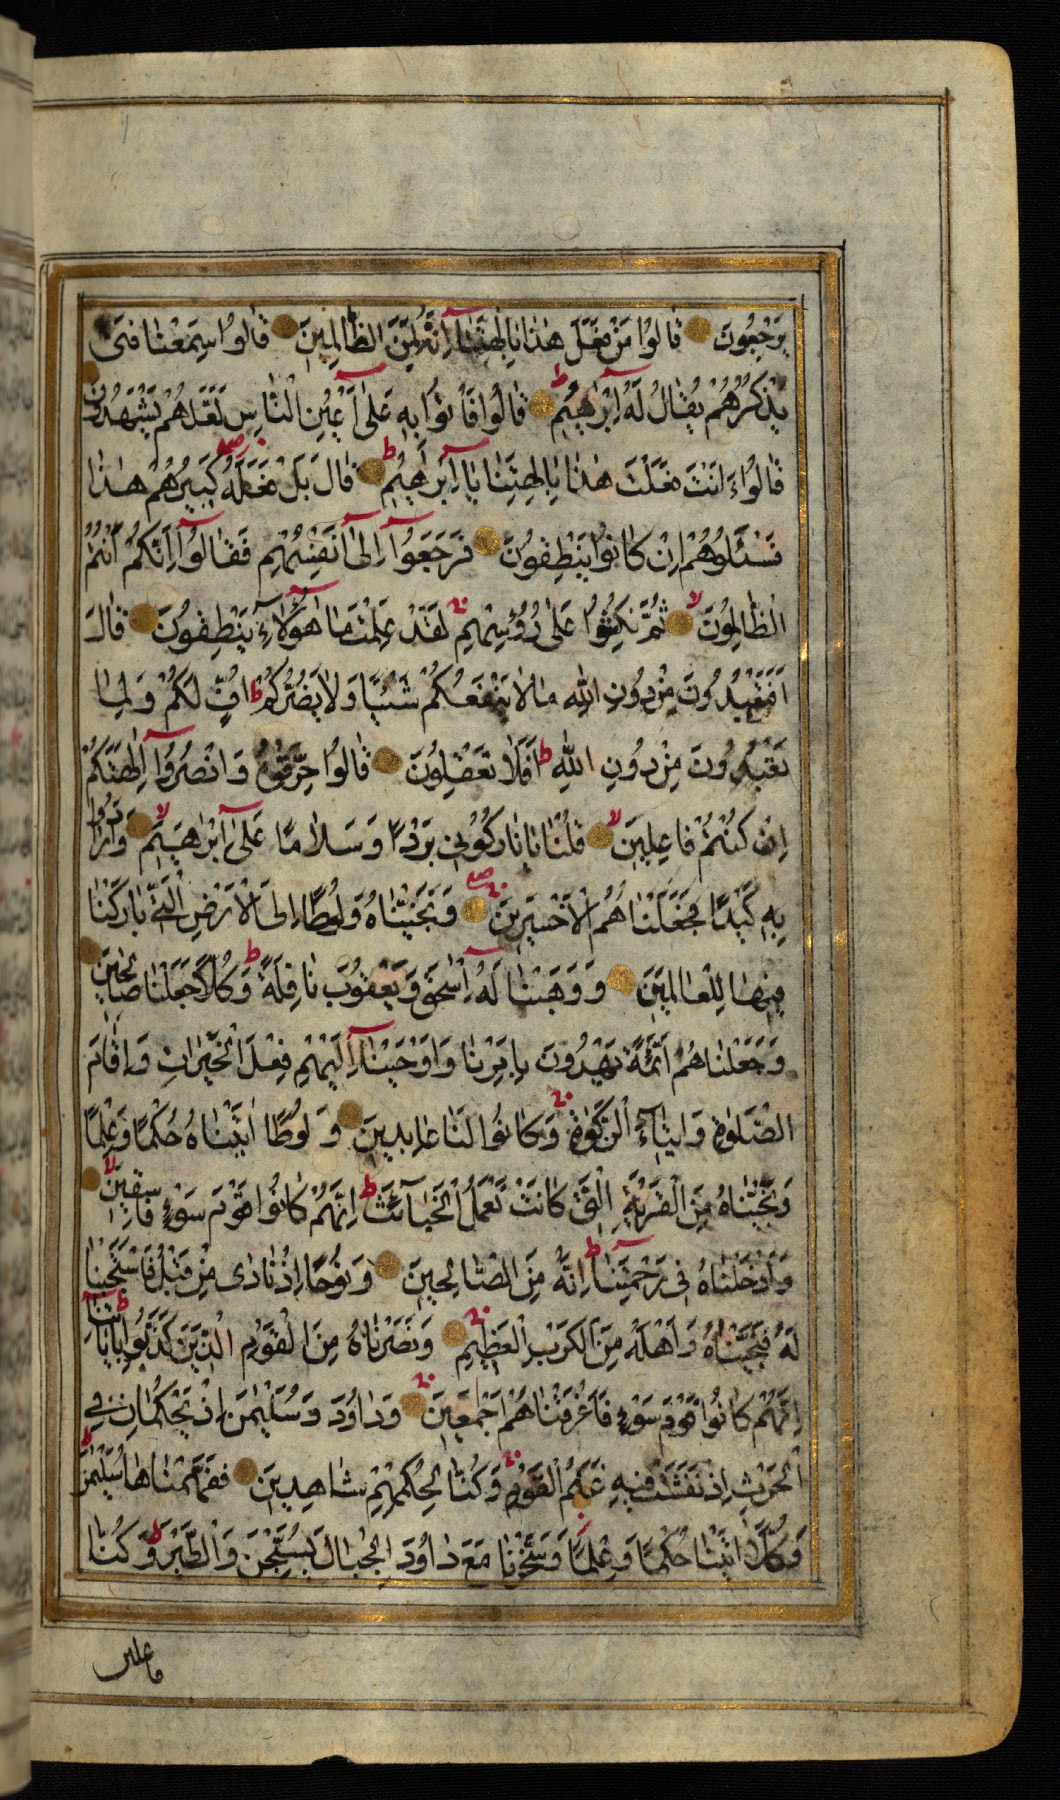 يَرْجِعُونَ قَالُوا مَنْ فَعَلَ هٰذَا بِاٰلِهَتِنَا اِنَّهُ لَمِنَ الظَّالِمِينَ قَالُوا سَمِعْنَا فَتًى
يَذْكُرُهُمْ يُقَالُ لَهُ اِبْرٰهِيمُ ط قَالُوا فَأْتُوا بِهِ عَلٰى اَعْيُنِ النَّاسِ لَعَلَّهُمْ يَشْهَدُونَ
قَالُوا ءَاَنْتَ فَعَلْتَ هٰذَا بِاٰلِهَتِنَا يَا اِبْرٰهِيمُ ط قَالَ بَلْ فَعَلَهُ كَبِيرُهُمْ هٰذَا
فَسْئَلُوهُمْ اِنْ كَانُوا يَنْطِقُونَ فَرَجَعُوا اِلٰى اَنْفُسِهِمْ فَقَالُوا اِنَّكُمْ اَنْتُمُ
الظَّالِمُونَ لا ثُمَّ نُكِسُوا عَلٰى رُؤُسِهِمْ لَقَدْ عَلِمْتَ مَا هٰؤُلَاءِ يَنْطِقُونَ قَالَ
اَفَتَعْبُدُونَ مِنْ دُونِ اللّٰهِ مَا لَا يَنْفَعُكُمْ شَيْئًا وَلَا يَضُرُّكُمْ ط اُفٍّ لَكُمْ وَلِمَا
تَعْبُدُونَ مِنْ دُونِ اللّٰهِ ط اَفَلَا تَعْقِلُونَ قَالُوا حَرِّقُوهُ وَانْصُرُوا اٰلِهَتَكُمْ
اِنْ كُنْتُمْ فَاعِلِينَ لا قُلْنَا يَا نَارُ كُونِي بَرْدًا وَسَلَامًا عَلٰى اِبْرٰهِيمَ لا وَاَرَادُوا
بِهِ كَيْدًا فَجَعَلْنَاهُمُ الْاَخْسَرِينَ وَنَجَّيْنَاهُ وَلُوطًا اِلَى الْاَرْضِ الَّتِي بَارَكْنَا
فِيهَا لِلْعَالَمِينَ وَوَهَبْنَا لَهُ اِسْحٰقَ وَيَعْقُوبَ نَافِلَةً ط وَكُلًّا جَعَلْنَا صَالِحِينَ
وَجَعَلْنَاهُمْ اَئِمَّةً يَهْدُونَ بِاَمْرِنَا وَاَوْحَيْنَا اِلَيْهِمْ فِعْلَ الْخَيْرَاتِ وَاِقَامَ
الصَّلٰوةِ وَاِيتَاءَ الزَّكٰوةِ وَكَانُوا لَنَا عَابِدِينَ وَلُوطًا اٰتَيْنَاهُ حُكْمًا وَعِلْمًا
وَنَجَّيْنَاهُ مِنَ الْقَرْيَةِ الَّتِي كَانَتْ تَعْمَلُ الْخَبَائِثَ ط اِنَّهُمْ كَانُوا قَوْمَ سَوْءٍ فَاسِقِينَ لا
وَاَدْخَلْنَاهُ فِي رَحْمَتِنَا ط اِنَّهُ مِنَ الصَّالِحِينَ وَنُوحًا اِذْ نَادٰى مِنْ قَبْلُ فَاسْتَجَبْنَا
لَهُ فَنَجَّيْنَاهُ وَاَهْلَهُ مِنَ الْكَرْبِ الْعَظِيمِ وَنَصَرْنَاهُ مِنَ الْقَوْمِ الَّذِينَ كَذَّبُوا بِاٰيَاتِنَا ط
اِنَّهُمْ كَانُوا قَوْمَ سَوْءٍ فَاَغْرَقْنَاهُمْ اَجْمَعِينَ وَدَاوُدَ وَسُلَيْمٰنَ اِذْ يَحْكُمَانِ فِي
الْحَرْثِ اِذْ نَفَشَتْ فِيهِ غَنَمُ الْقَوْمِ وَكُنَّا لِحُكْمِهِمْ شَاهِدِينَ فَفَهَّمْنَاهَا سُلَيْمٰنَ ط
وَكُلًّا اٰتَيْنَا حُكْمًا وَعِلْمًا وَسَخَّرْنَا مَعَ دَاوُدَ الْجِبَالَ يُسَبِّحْنَ وَالطَّيْرَ ط وَكُنَّا
فاعلين